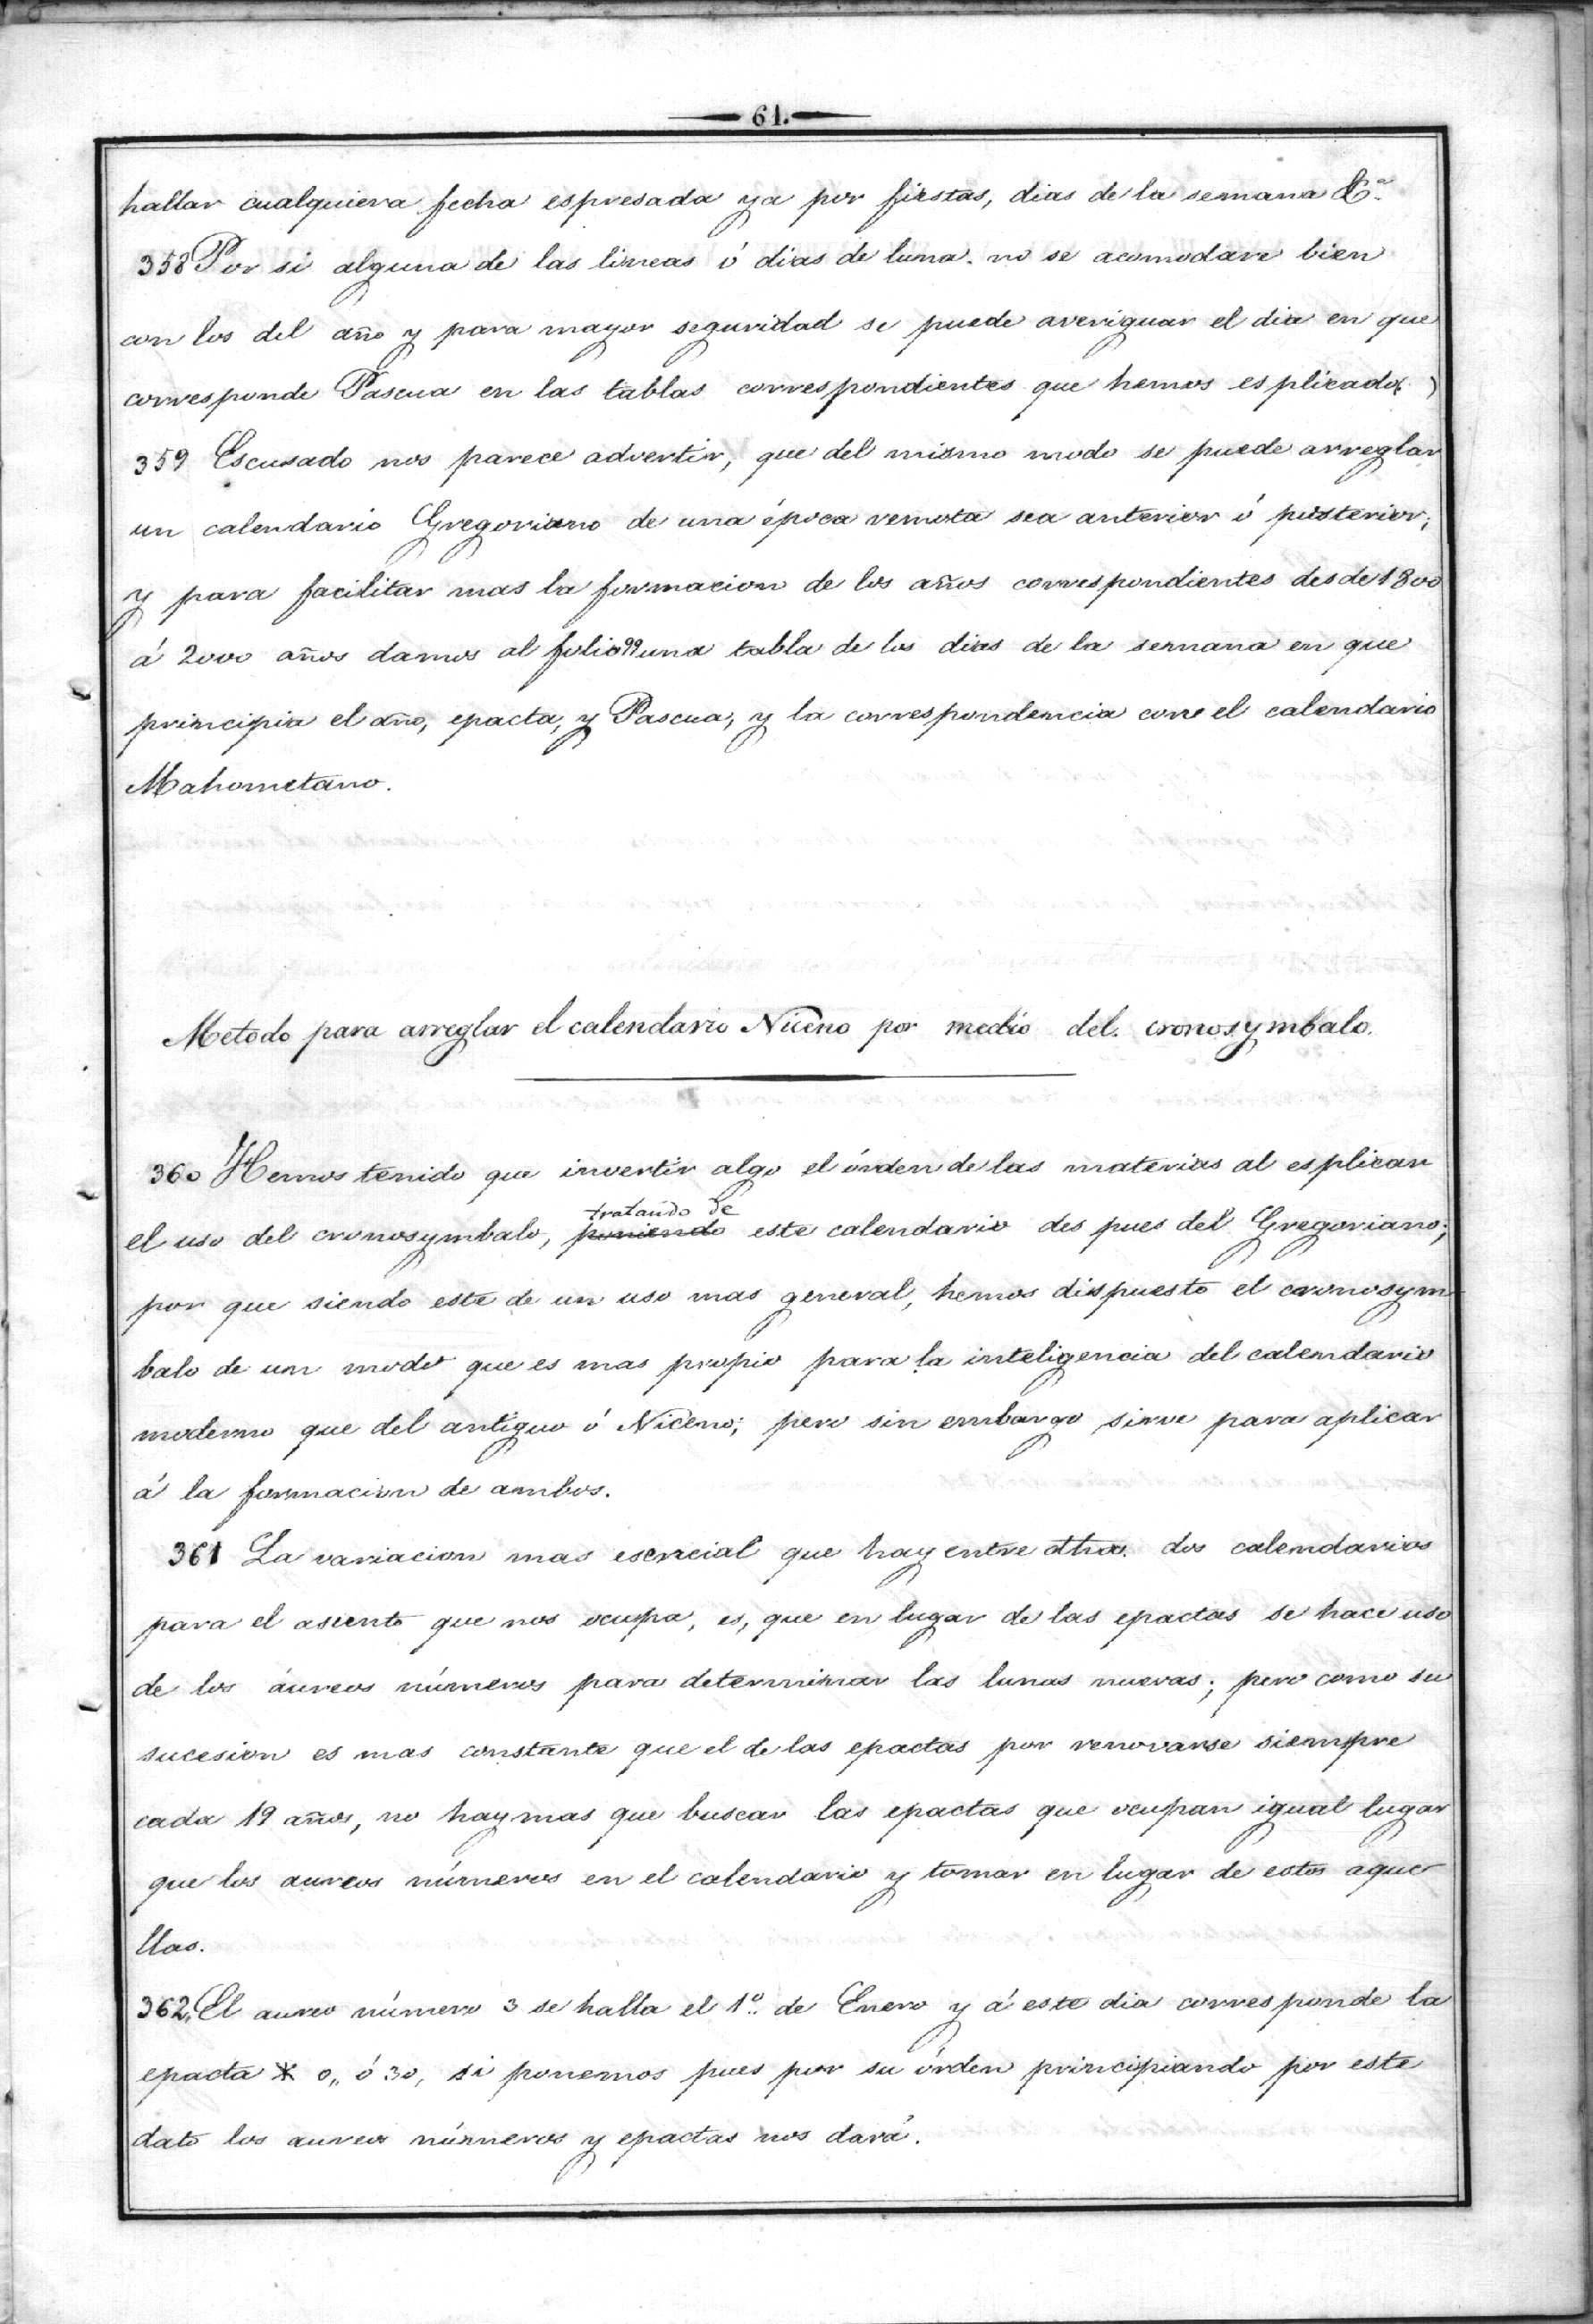 61.
hallar cualquiera fecha espresada ya por fiestas, dias de la semana &.ª
358 Por si alguna de las lineas ó dias de luna no se acomodare bien
con los del año y para mayor seguridad se puede averiguar el dia en que
corresponde Pascua en las tablas correspondientes que hemos esplicado.
359 Escusado nos parece advertir, que del mismo modo se puede arreglar
un calendario Gregoriano de una época remota sea anterior ó posterior;
y para facilitar mas la formacion de los años correspondientes desde 1800
á 2000 años damos al folio 99 una tabla de los dias de la semana en que
principia el año, epacta, y Pascua, y la correspondencia con el calendario
Mahometano.
Metodo para arreglar el calendario Niceno por medio del cronosymbalo.
360 Hemos tenido que invertir algo el órden de las materias al esplicar
tratando de
el uso del cronosymbalo, poniendo este calendario des pues del Gregoriano;
por que siendo este de un uso mas general, hemos dispuesto el cronosym-
balo de un modo que es mas propio para la inteligencia del calendario
moderno que del antiguo ó Niceno; pero sin embargo sirve para aplicar
á la formacion de ambos.
361 La variacion mas esencial que hay entre dhos. dos calendarios
para el asunto que nos ocupa, es, que en lugar de las epactas se hace uso
de los áureos números para determinar las lunas nuevas; pero como su
sucesion es mas constante que el de las epactas por renovarse siempre
cada 19 años, no hay mas que buscar las epactas que ocupan igual lugar
que los aureos números en el calendario y tomar en lugar de estos aque
llas.
362. El aureo número 3 se halla el 1º. de Enero y á este dia corresponde la
epacta * 0,, ó 30, si ponemos pues por su órden principiando por este
dato los aureos números y epactas nos dará.